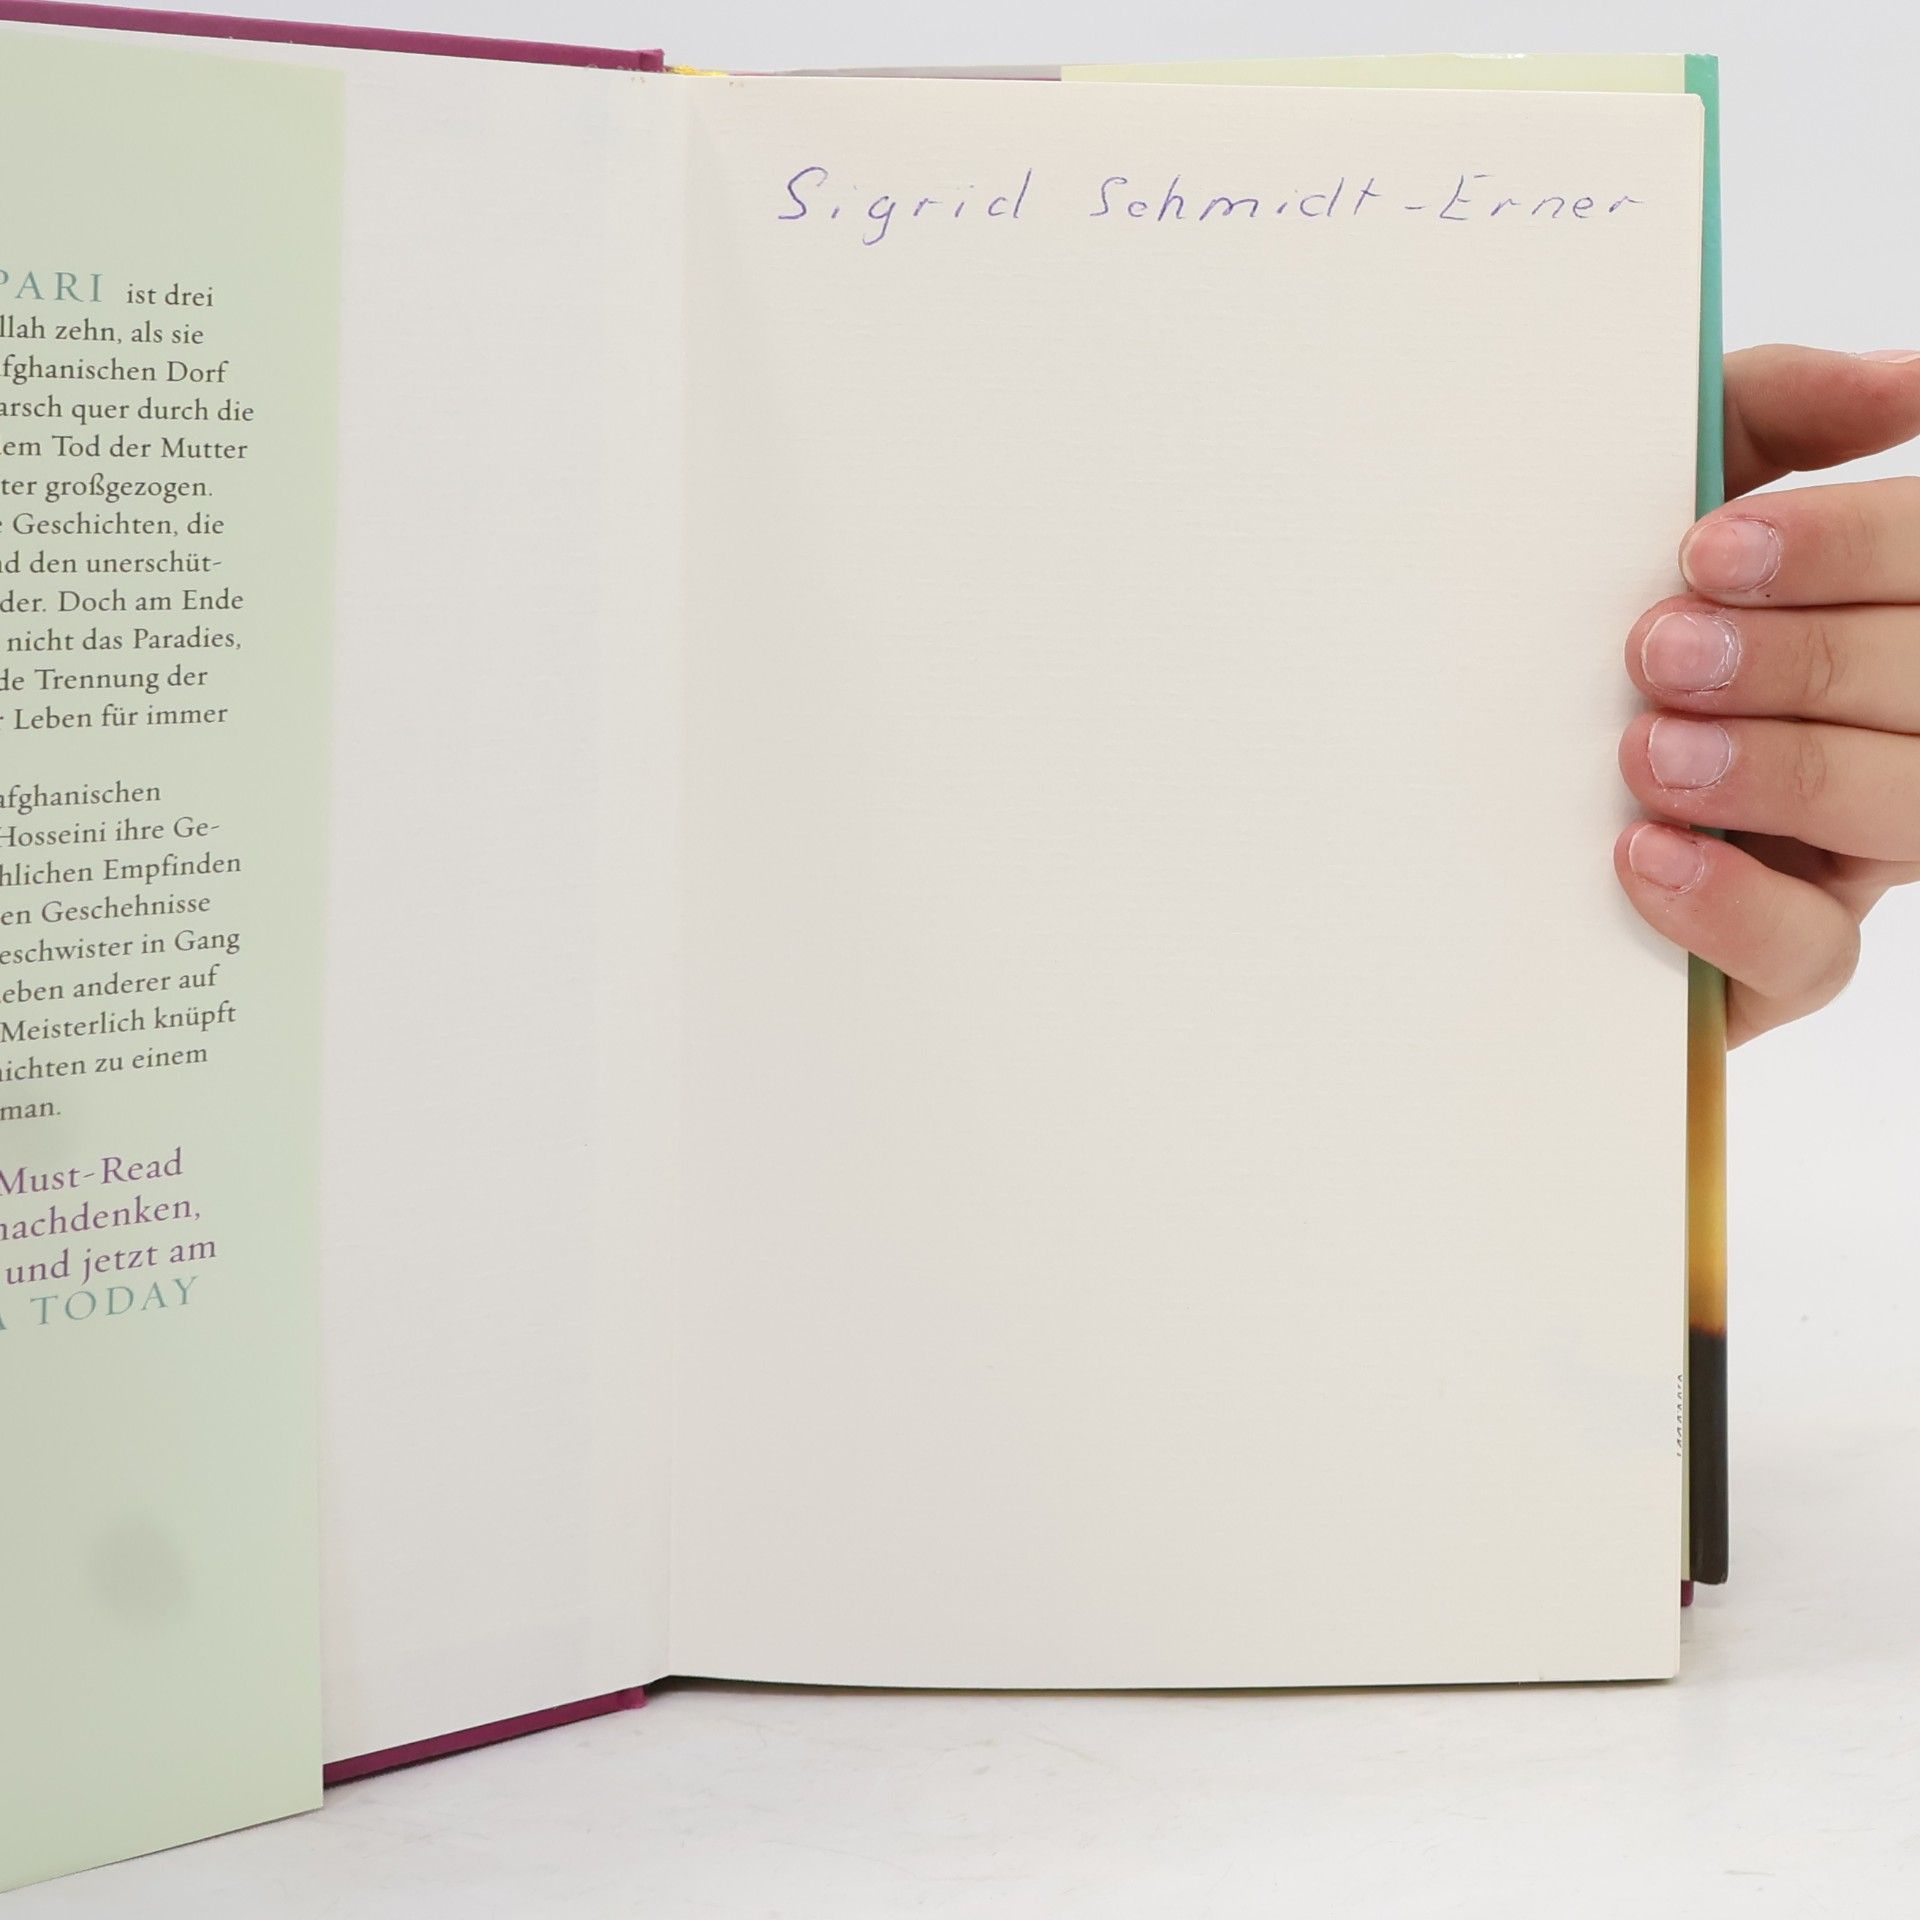 PARI ist drei
llah zehn, als sie
fghanischen Dorf
arsch quer durch die
dem Tod der Mutter
ter großgezogen.
e Geschichten, die
nd den unerschüt-
der. Doch am Ende
nicht das Paradies,
de Trennung der
r Leben für immer
afghanischen
Hosseini ihre Ge-
hlichen Empfinden
en Geschehnisse
eschwister in Gang
Leben anderer auf
Meisterlich knüpft
hichten zu einem
man.
Must-Read
nachdenken,
und jetzt am
A TODAY
Sigrid Schmidt-Erner